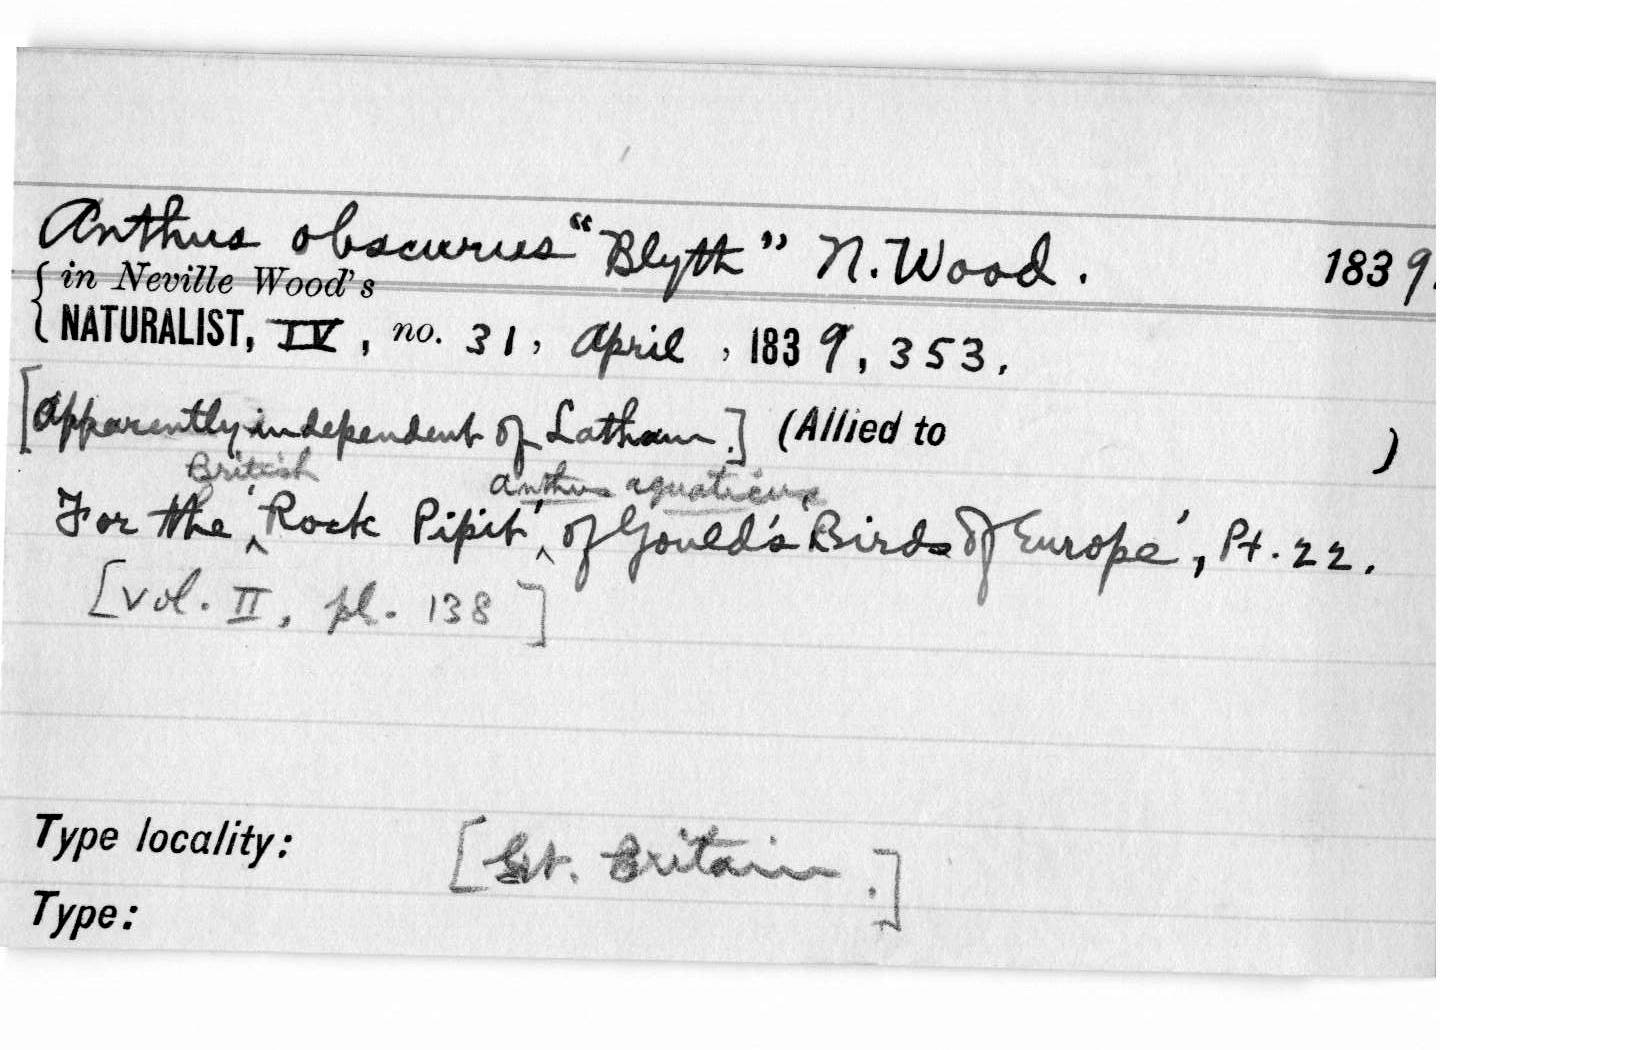 Anthus obscurus "Blyth" N. Wood. 1839.
{ in Neville Wood's
NATURALIST, IV, no. 31, April, 1839, 353.
[Apparently independent of Latham.] (Allied to )
British Anthus aquaticus
For the ‸ 'Rock Pipit' ‸ of Gould's 'Birds of Europe', Pt. 22.
[vol. II, pl. 138]
Type locality: [Gt. Britain.]
Type: